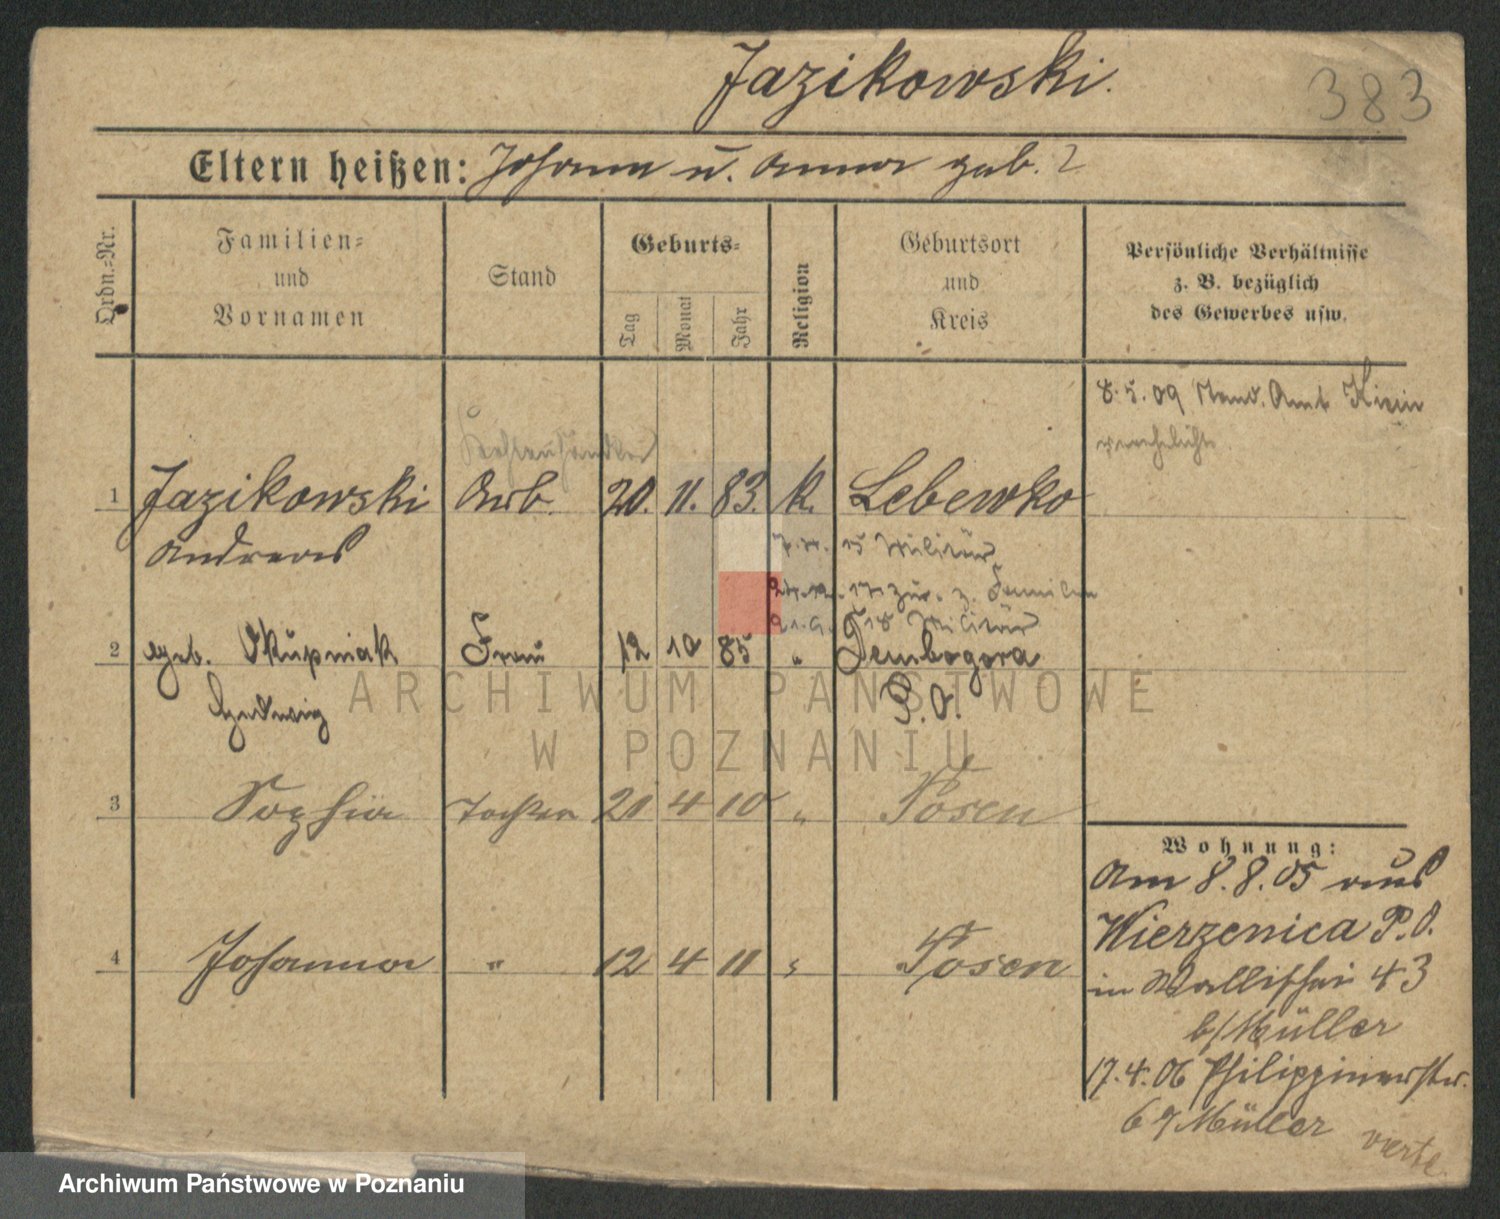 Jazikowski.
383
Eltern heißen: Johann u. Anna geb. ?
Ordn.-Nr.
Familien-
und
Vornamen
Stand
Geburts-
Tag
Monat
Jahr
Religion
Geburtsort
und
Kreis
Persönliche Verhältnisse
z. B. bezüglich
des Gewerbes usw.
8. 5. 09 Stand. Amt
verehelicht.
1 Jazikowski Arb. 20. 11. 83. k. Lebewko
Andreas
15 Militär
17 zur. z. Familie
18 Militär
2 geb. Skupniak Frau 12 10 85 " Dembogora
Hedwig P. O.
3 Sophia Tochter 21 4 10 " Posen
Wohnung:
Am 8. 8. 05 aus
Wierzenica P. O.
in Wallischei 43
b/Müller
4 Johanna " 12 4 11 " Posen
17. 4. 06 Philippinerstr.
6 b/Müller
verte
ARCHIWUM PAŃSTWOWE
W POZNANIU
Archiwum Państwowe w Poznaniu